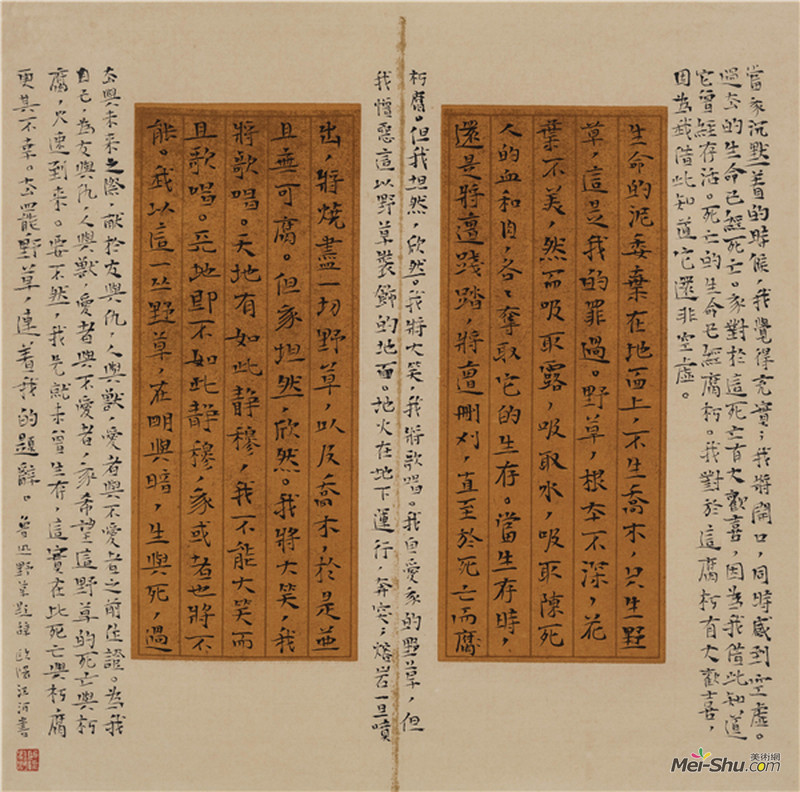 當我沉默着的時候，我覺得充實；我將開口，同時感到空虛。
過去的生命已經死亡。我對於這死亡有大歡喜，因為我借此知道
它曾經存活。死亡的生命已經腐朽。我對於這腐朽有大歡喜，
因為我借此知道它還非空虛。
生命的泥委棄在地面上，不生喬木，只生野
草，這是我的罪過。野草，根本不深，花
葉不美，然而吸取露，吸取水，吸取陳死
人的血和肉，各々奪取它的生存。當生存時，
還是將遭踐踏，將遭刪刈，直至於死亡而腐
朽腐。但我坦然，欣然。我將大笑，我將歌唱。我自愛我的野草，但
我憎惡這以野草裝飾的地面。地火在地下運行，奔突；熔岩一旦噴
出，將燒盡一切野草，以及喬木，於是並
且無可腐。但我坦然，欣然。我將大笑，我
將歌唱。天地有如此静穆，我不能大笑而
且歌唱。天地即不如此静穆，我或者也將不
能。我以這一丛野草，在明與暗，生與死，過
去與未来之際，献於友與仇，人與獸，愛者與不愛者之前作證。為我
自己，為友與仇，人與獸，愛者與不愛者，我希望這野草的死亡與朽
腐，火速到来。要不然，我先就未曾生存，這實在比死亡與朽腐
更其不幸。去罷，野草，連着我的題辭。魯迅野草題辭 歐陽江河書
美術網
Mei-Shu.com